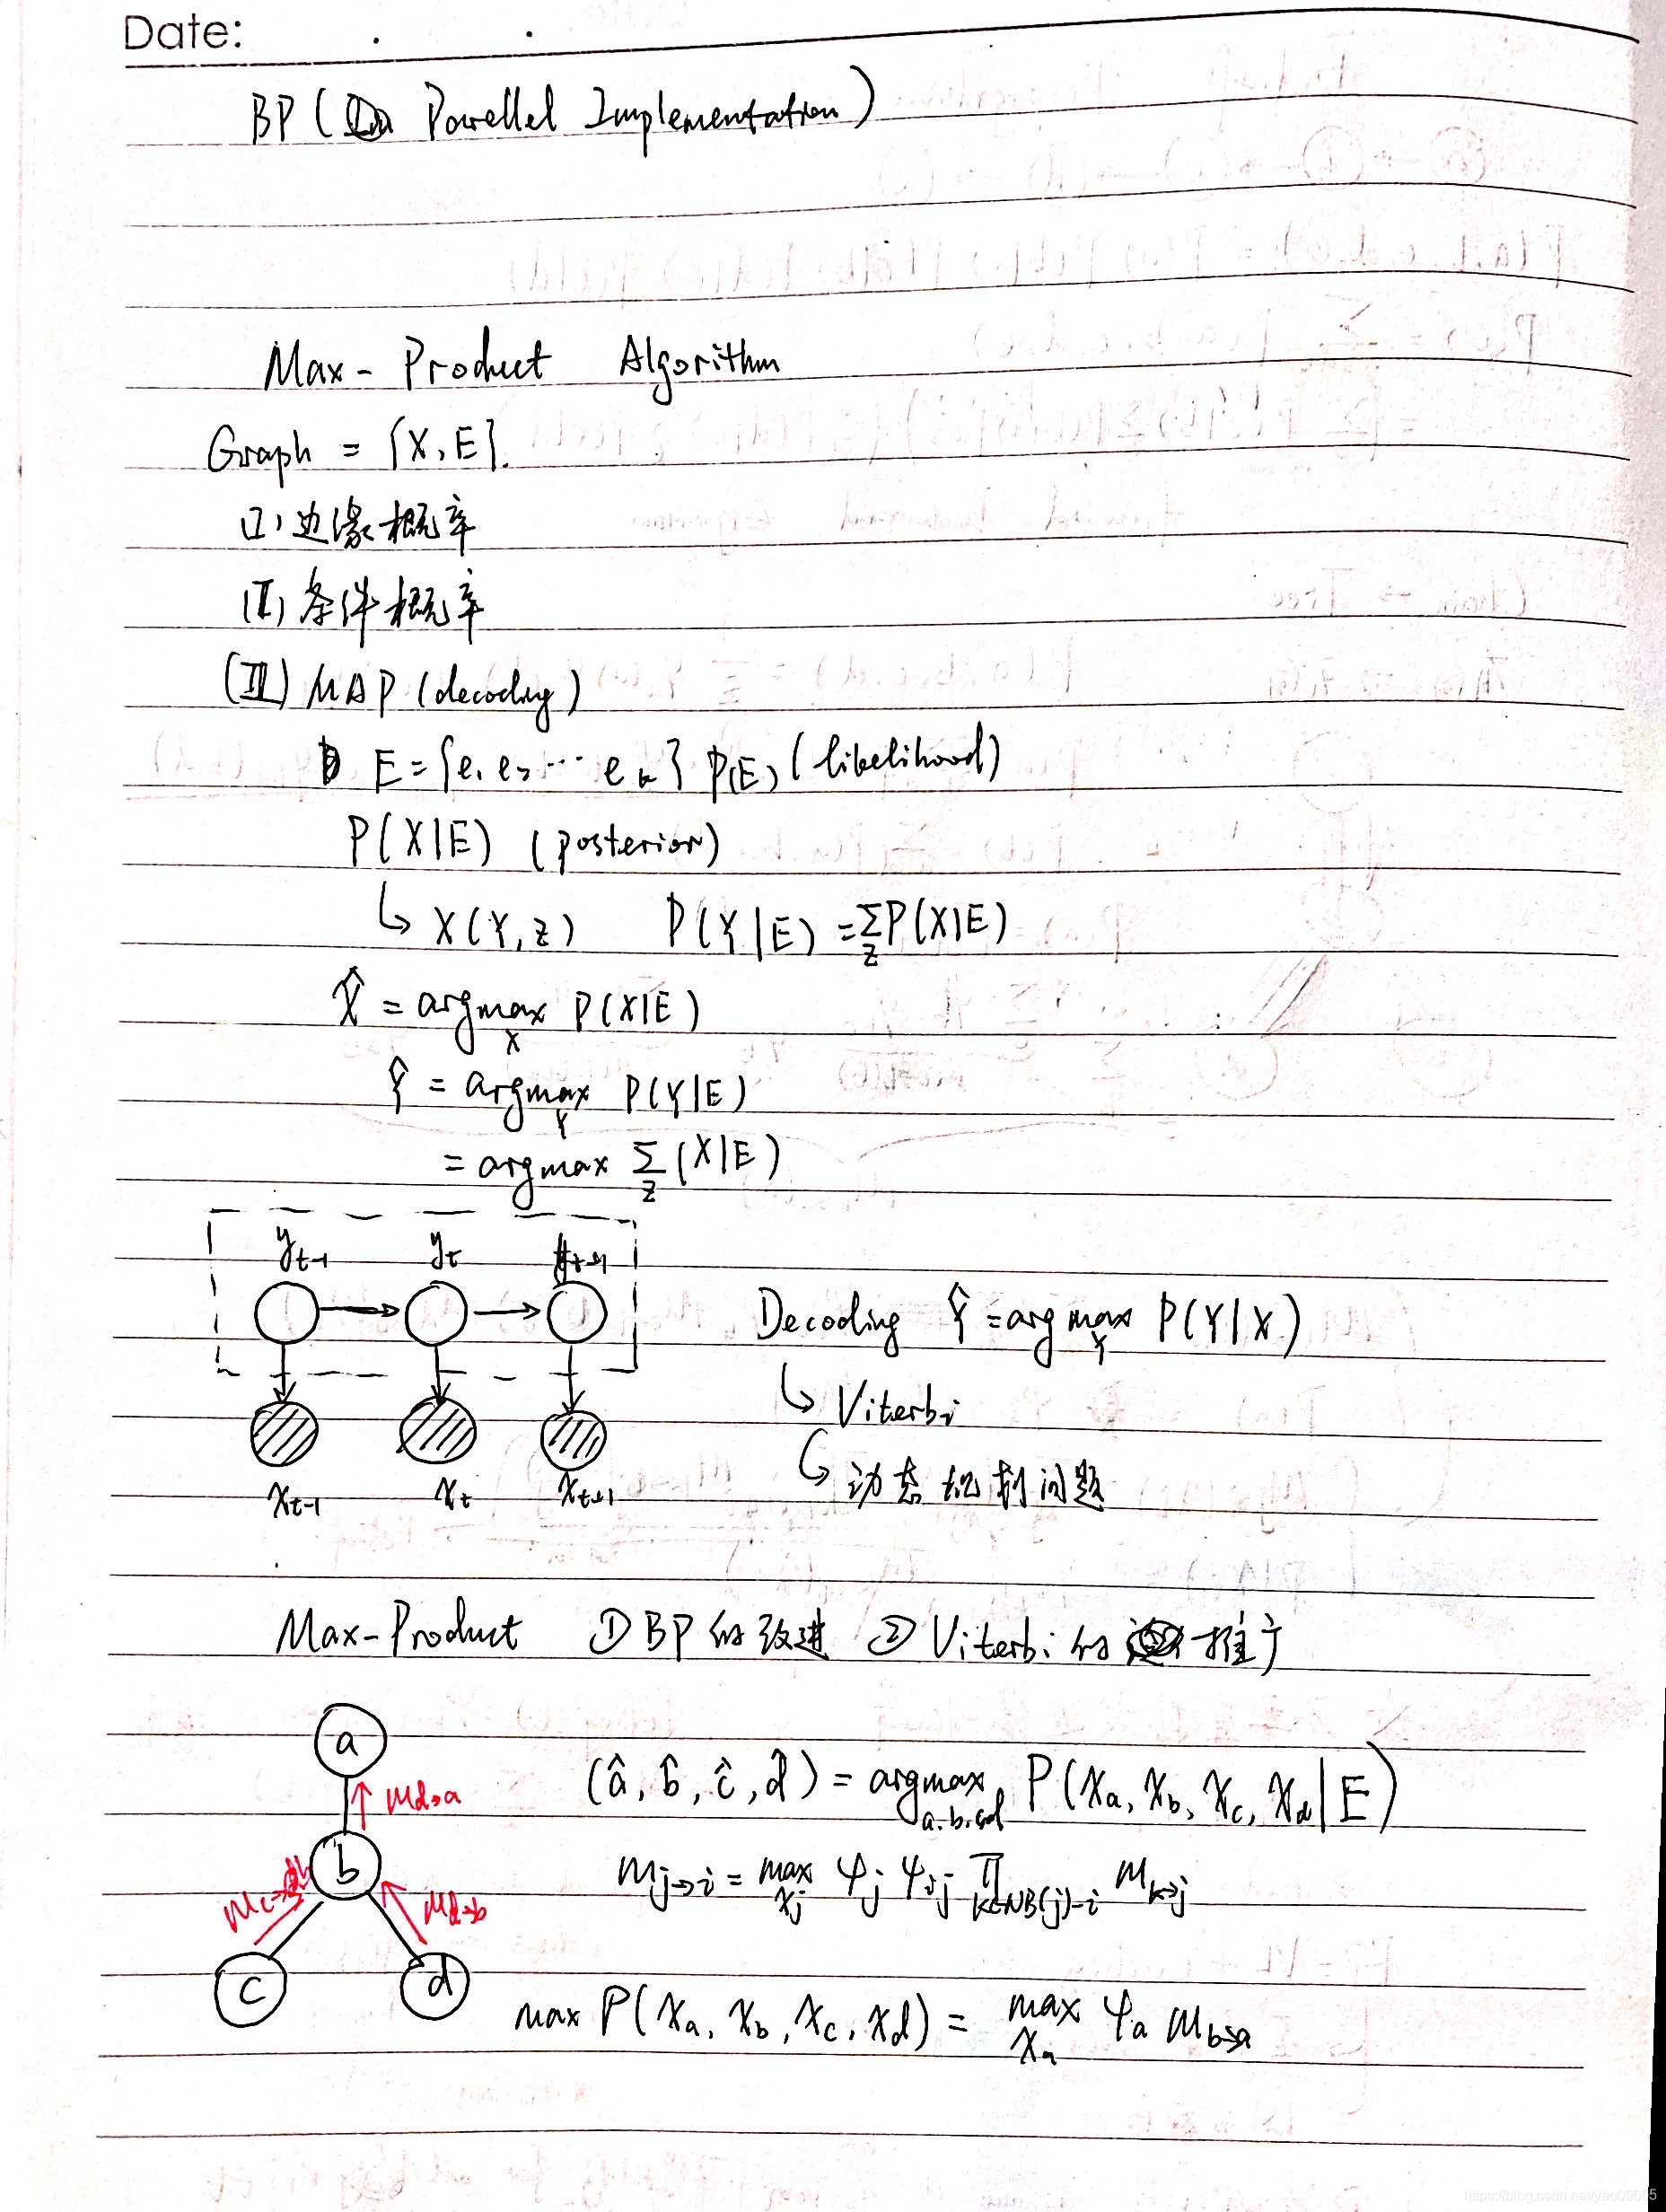 Date:
BP ( Parellel Implementation)
Max-Product Algorithm
Graph = {X, E}.
(I) 边缘概率
(II) 条件概率
(III) MAP (decoding)
E = {e₁ e₂ ⋯ eₖ} P(E) (likelihood)
P(X|E) (posterior)
↳ X(Y, Z) P(Y|E) = ∑_Z P(X|E)
X̂ = argmax_X P(X|E)
Ŷ = argmax_Y P(Y|E)
= argmax ∑_Z (X|E)
y_{t-1} y_t y_{t+1}
Decoding Ŷ = argmax_Y P(Y|X)
↳ Viterbi
↳ 动态规划问题
x_{t-1} x_t x_{t+1}
Max-Product ① BP的改进 ② Viterbi的推广
a
m_{d→a}
(â, b̂, ĉ, d̂) = argmax_{a.b.c.d} P(x_a, x_b, x_c, x_d | E)
b
m_{j→i} = max_{x_j} ψ_j ψ_{ij} ∏_{k∈NB(j)-i} m_{k→j}
m_{c→b} m_{d→b}
c d
max P(x_a, x_b, x_c, x_d) = max_{x_a} ψ_a m_{b→a}
https://blog.csdn.net/yao09605